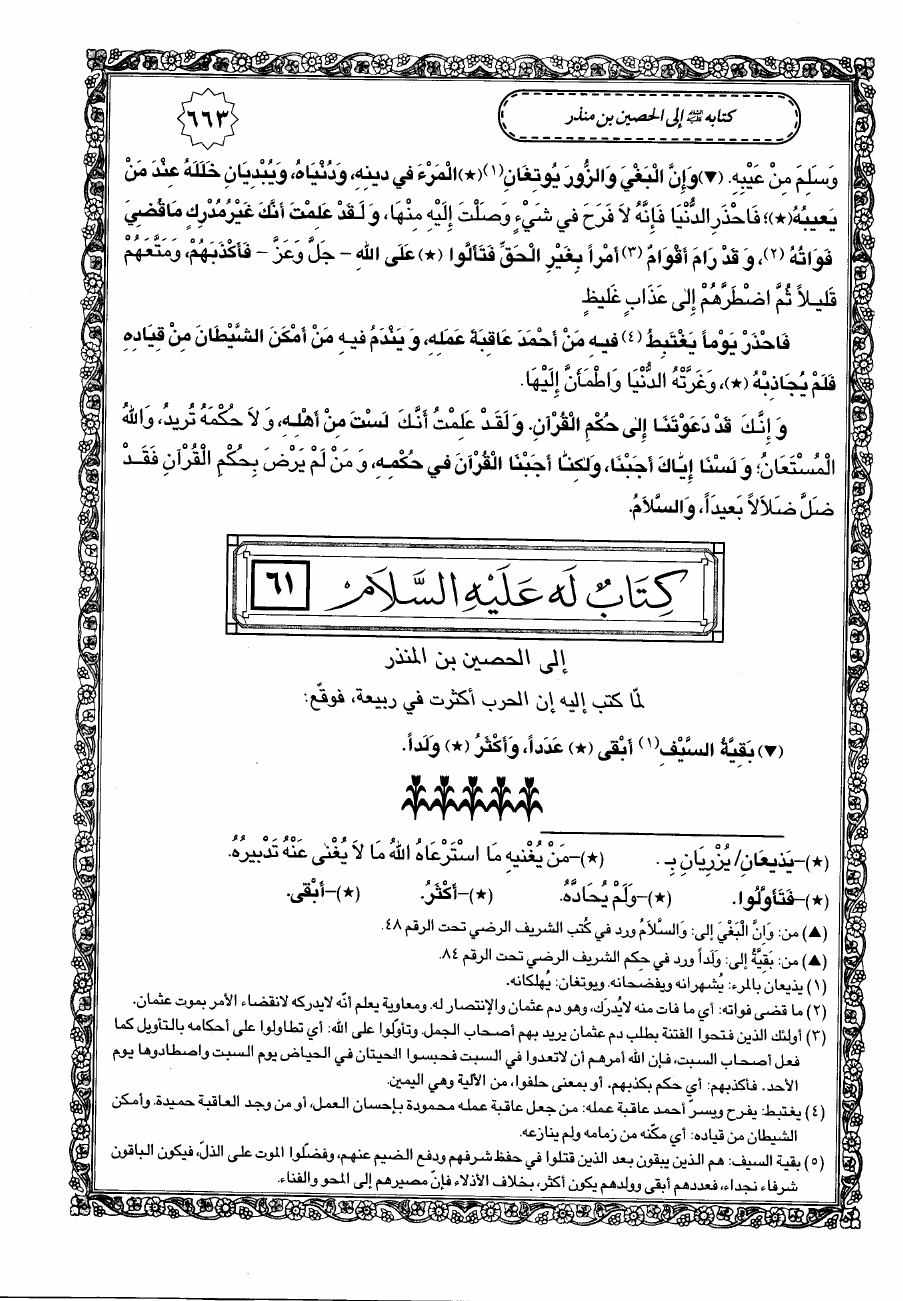 كتابه عليه السلام إلى الحصين بن منذر
٦٦٣
وَسَلِمَ مِنْ عَيْبِهِ. (▼) وَإِنَّ الْبَغْيَ وَالزُّورَ يُوتِغَانِ(١)(★) الْمَرْءَ في دينِهِ، وَدُنْيَاهُ، وَيُبْدِيَانِ خَلَلَهُ عِنْدَ مَنْ
يَعيبُهُ(★)؛ فَاحْذَرِ الدُّنْيَا فَإِنَّهُ لَا فَرَحَ في شَيْءٍ وَصَلْتَ إِلَيْهِ مِنْهَا، وَلَقَدْ عَلِمْتَ أَنَّكَ غَيْرُ مُدْرِكٍ مَا قُضِيَ
فَوَاتُهُ (٢)، وَقَدْ رَامَ أَقْوَامٌ (٣) أَمْراً بِغَيْرِ الْحَقِّ فَتَأَلَّوا (★) عَلَى اللهِ - جَلَّ وَعَزَّ - فَأَكْذَبَهُمْ، وَمَتَّعَهُمْ
قَليلاً ثُمَّ اضْطَرَّهُمْ إِلى عَذَابٍ غَليظٍ
فَاحْذَرْ يَوْماً يَغْتَبِطُ (٤) فيهِ مَنْ أَحْمَدَ عَاقِبَةَ عَمَلِهِ، وَيَنْدَمُ فيهِ مَنْ أَمْكَنَ الشَّيْطَانَ مِنْ قِيَادِهِ
فَلَمْ يُجَاذِبْهُ (★)، وَغَرَّتْهُ الدُّنْيَا وَاطْمَأَنَّ إِلَيْهَا.
وَإِنَّكَ قَدْ دَعَوْتَنَا إِلى حُكْمِ الْقُرْآنِ. وَلَقَدْ عَلِمْتُ أَنَّكَ لَسْتَ مِنْ أَهْلِهِ، وَلَا حُكْمَهُ تُريدُ، وَاللهُ
الْمُسْتَعَانُ؛ وَلَسْنَا إِيَّاكَ أَجَبْنَا، وَلكِنَّا أَجَبْنَا الْقُرْآنَ في حُكْمِهِ، وَمَنْ لَمْ يَرْضَ بِحُكْمِ الْقُرْآنِ فَقَدْ
ضَلَّ ضَلَالاً بَعيداً، وَالسَّلَامُ.
كِتَابٌ لَه عَلَيْهِ السَّلَامُ ٦١
إلى الحصين بن المنذر
لمّا كتب إليه إن الحرب أكثرت في ربيعة، فوقّع:
(▼) بَقِيَّةُ السَّيْفِ(١) أَبْقى (★) عَدَداً، وَأَكْثَرُ (★) وَلَداً.
(★)-يَذيعَانِ/ يُزْرِيَانِ بِـ . (★)-مَنْ يُغْنيهِ مَا اسْتَرْعَاهُ اللهُ مَا لَا يُغْنى عَنْهُ تَدْبيرُهُ.
(★)-فَتَأَوَّلُوا. (★)-وَلَمْ يُحَادَّهُ. (★)-أَكْثَرُ. (★)-أَبْقى.
(▲) من: وَإِنَّ الْبَغْيَ إلى: وَالسَّلَامُ ورد في كُتب الشريف الرضي تحت الرقم ٤٨.
(▲) من: بَقِيَّةُ إلى: وَلَداً ورد في حِكم الشريف الرضي تحت الرقم ٨٤.
(١) يذيعان بالمرء: يُشهرانه ويفضحانه. ويوتغان: يُهلكانه.
(٢) ما قضى فواته: أي ما فات منه لايُدرَك، وهو دم عثمان والإنتصار له. ومعاوية يعلم أنّه لايدركه لانقضاء الأمر بموت عثمان.
(٣) أولئك الذين فتحوا الفتنة بطلب دم عثمان يريد بهم أصحاب الجمل. وتأوّلوا على الله: أي تطاولوا على أحكامه بالتأويل كما
فعل أصحاب السبت، فإن الله أمرهم أن لاتعدوا في السبت فحبسوا الحيتان في الحياض يوم السبت واصطادوها يوم
الأحد. فأكذبهم: أي حكم بكذبهم. أو بمعنى حلفوا، من الألية وهي اليمين.
(٤) يغتبط: يفرح ويسرّ أحمد عاقبة عمله: من جعل عاقبة عمله محمودة بإحسان العمل، أو من وجد العاقبة حميدة. وأمكن
الشيطان من قياده: أي مكّنه من زمامه ولم ينازعه.
(٥) بقية السيف: هم الذين يبقون بعد الذين قتلوا في حفظ شرفهم ودفع الضيم عنهم، وفضّلوا الموت على الذلّ، فيكون الباقون
شرفاء نجداء، فعددهم أبقى وولدهم يكون أكثر، بخلاف الأذلاء فإنّ مصيرهم إلى المحو والفناء.